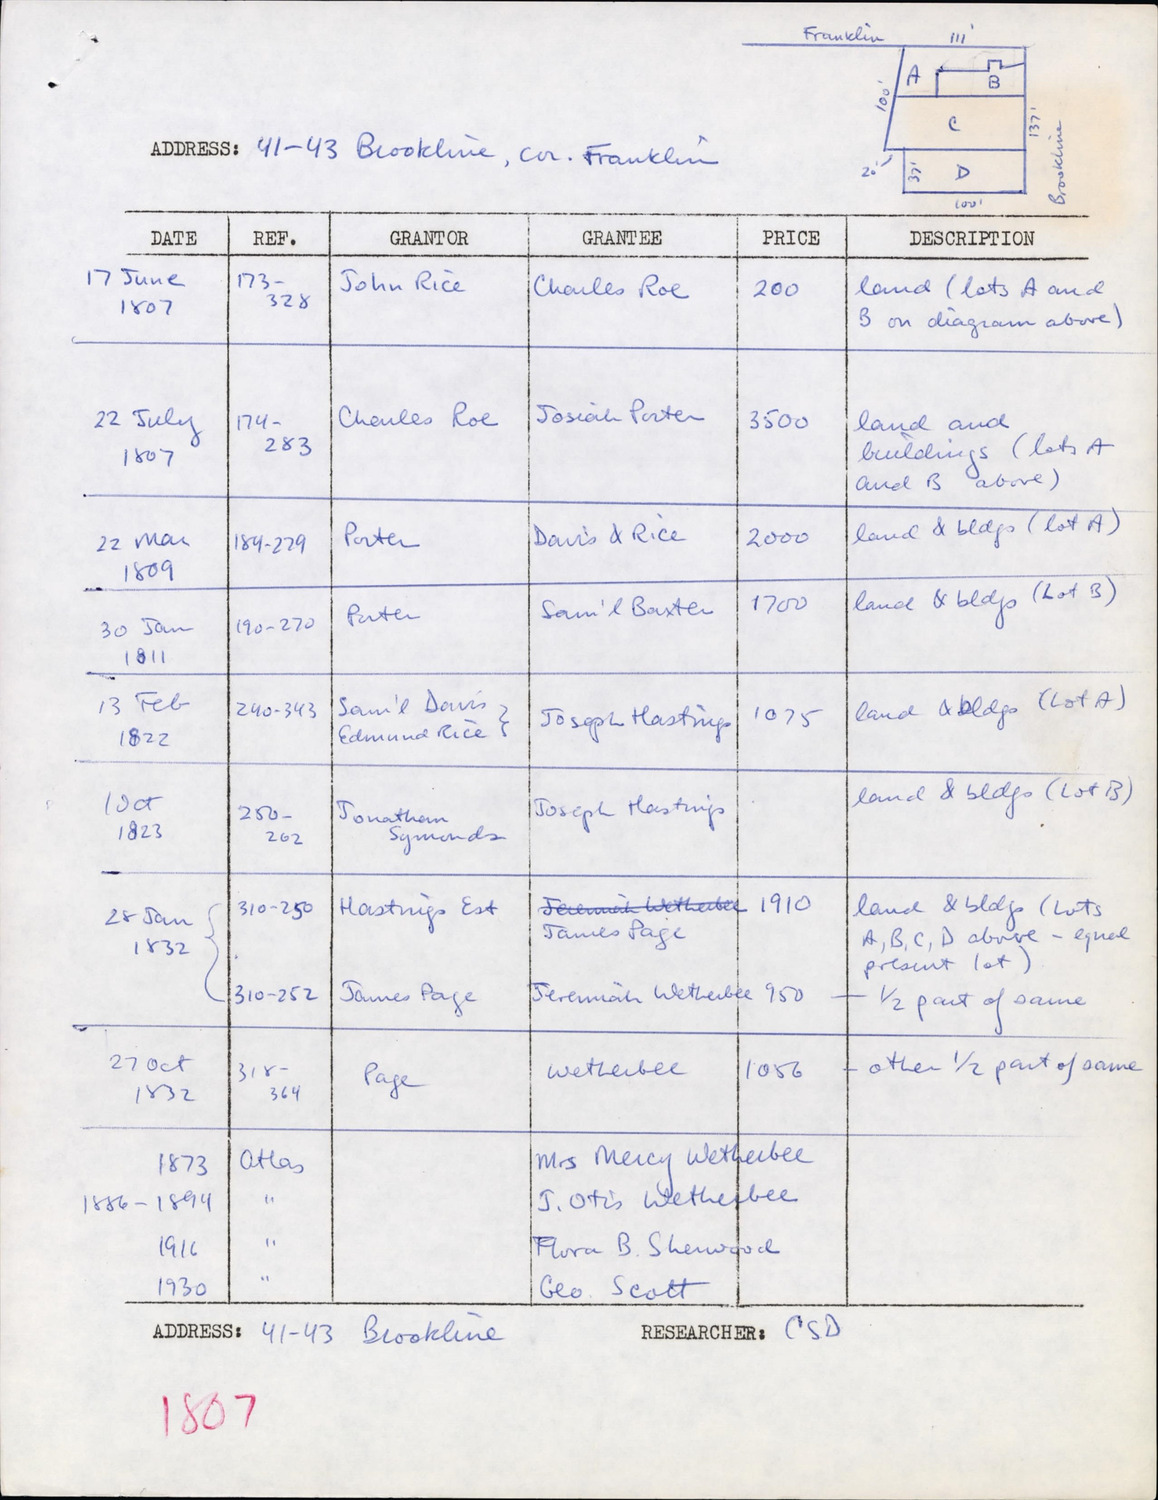 Franklin 111'
A B
100' C 137'
20' 37' D Brookline
100'
ADDRESS: 41-43 Brookline, cor. Franklin
DATE REF. GRANTOR GRANTEE PRICE DESCRIPTION
17 June 173- John Rice Charles Roe 200 land (lots A and
1807 328 B on diagram above)
22 July 174- Charles Roe Josiah Porter 3500 land and
1807 283 buildings (lots A
and B above)
22 Mar 184-229 Porter Davis & Rice 2000 land & bldgs (lot A)
1809
30 Jan 190-270 Porter Sam'l Baxter 1700 land & bldgs (Lot B)
1811
13 Feb 240-343 Sam'l Davis } Joseph Hastings 1075 land & bldgs (Lot A)
1822 Edmund Rice
1 Oct 250- Jonathan Joseph Hastings land & bldgs (Lot B)
1823 262 Symonds
28 Jan { 310-250 Hastings Est Jeremiah Wetherbee 1910 land & bldgs (Lots
1832 James Page A, B, C, D above - equal
present lot)
310-252 James Page Jeremiah Wetherbee 950 — 1/2 part of same
27 Oct 318- Page Wetherbee 1056 - other 1/2 part of same
1832 364
1873 Atlas Mrs Mercy Wetherbee
1886-1894 " J. Otis Wetherbee
1916 " Flora B. Sherwood
1930 " Geo. Scott
ADDRESS: 41-43 Brookline RESEARCHER: CSD
1807